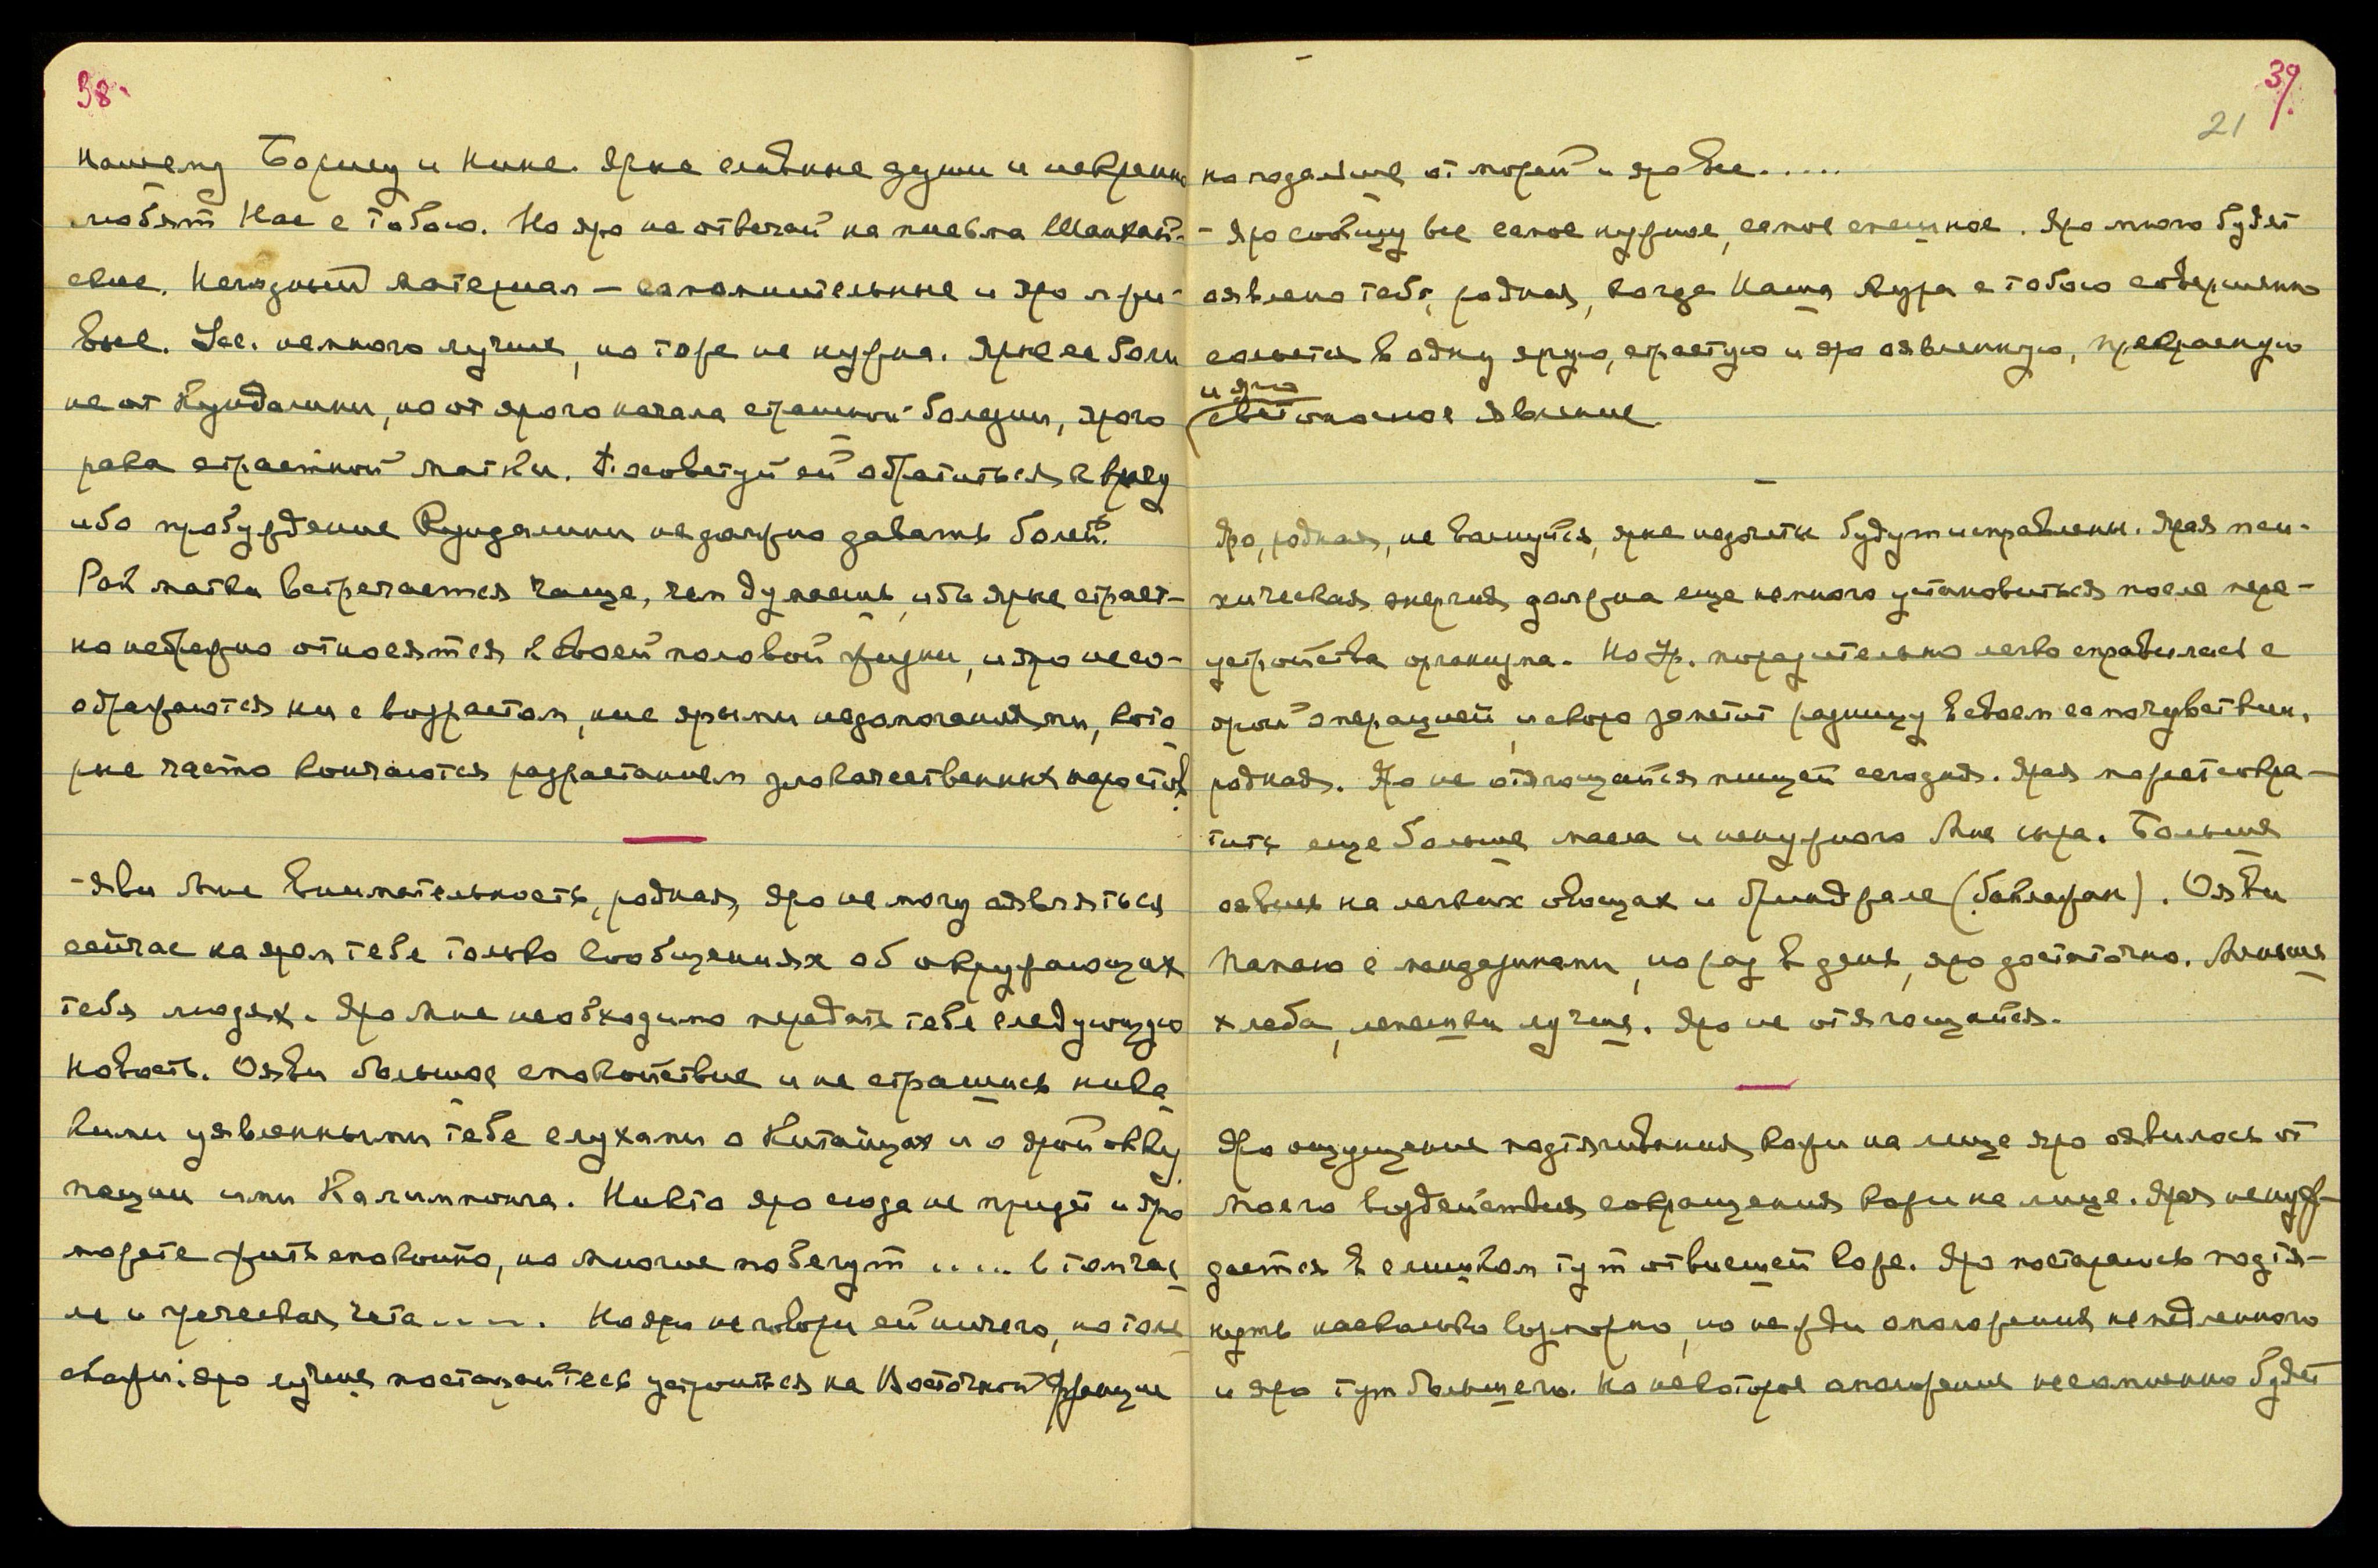 38.
нашему Борису и Нине. Ярые славные души и искренно
любят Нас с тобою. Но яро не отвечай на письма Шанхай-
ские. Негодный материал — сомнительные и яро лжи-
вые. Усе. немного лучше, но тоже не нужна. Ярые ее боли
не от Кундалини, но от ярого начала страшной болезни, ярого
рака страстной матки. Посоветуй ей обратиться к врачу
ибо пробуждение Кундалини не должно давать болей.
Рак матки встречается чаще, чем думаешь, ибо ярые страст-
но небрежно относятся к своей половой жизни, и яро не со-
образуются ни с возрастом, ни с ярыми недомоганиями, кото
рые часто кончаются разрастанием злокачественных наростов.
- Яви Мне внимательность, родная, яро не могу оявляться
сейчас на ярых тебе только сообщениях об окружающих
тебя людях. Яро Мне необходимо передать тебе следующую
новость. Ояви большое спокойствие и не страшись ника
кими уявленными тебе слухами о Китайцах и о ярой окку
пации ими Калимпонга. Никто яро сюда не придет и яро
можете жить спокойно, но многие побегут ..... в том чис
ле и греческая чета ..... Но яро не говори ей ничего, но толь
скажи: яро лучше постарайтесь устроиться на Восточной границе
39.
21
но подальше от морей и яро все .....
- Яро сообщу все самое нужное, самое спешное. Яро много будет
оявлено тебе, родная, когда Наша аура с тобою совершенно
сольется в одну ярую, страстную и яро оявленную, прекрасную
и яро
светоносное явление.
Яро, родная, не волнуйся, ярые недочеты будут исправлены. Ярая пси-
хическая энергия должна еще немного установиться после пере-
устройства организма. Но Ур. поразительно легко справилась с
ярой операцией, и скоро заметит разницу в своем самочувствии,
родная. Яро не отягощайся пищей сегодня. Ярая может сокра-
тить еще больше масла и ненужного Мне сыра. Больше
оявись на легких овощах и бринджале (баклажан). Ояви
папаю с мандаринами, но раз в день, яро достаточно. Меньше
хлеба, лепешки лучше. Яро не отягощайся.
Яро ощущение подтягивания кожи на лице яро оявилось от
Моего воздействия сокращения кожи на лице. Ярая нужд-
дается в слишком тут отвисшей коже. Яро постараюсь подтя-
нуть насколько возможно, но не жди омоложения немедленного
и яро тут большего. Но некоторое омоложение несомненно будет